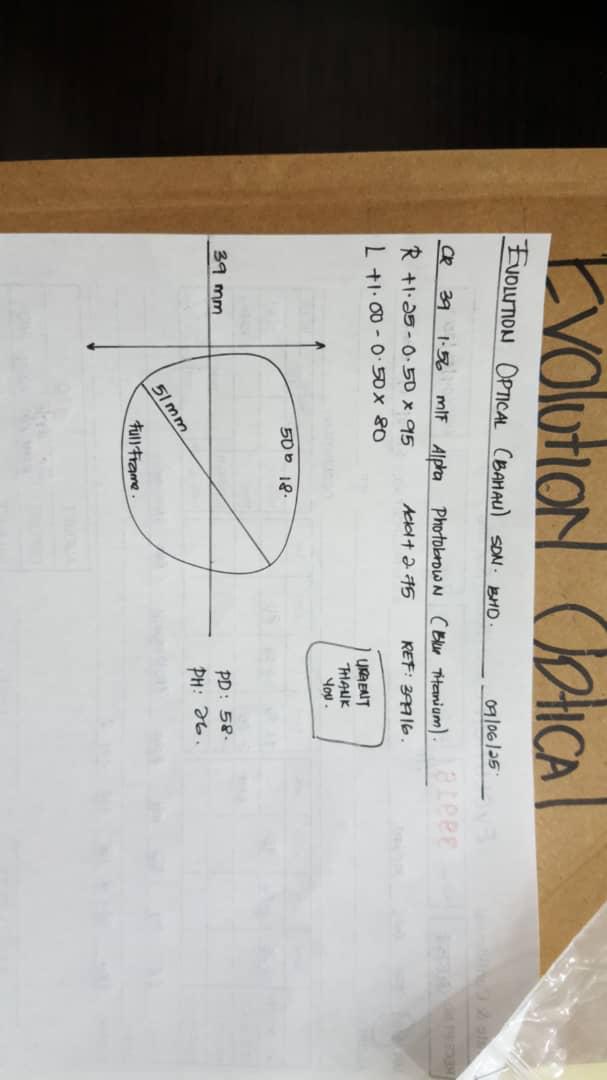 EVOLUTION OPTICAL
EVOLUTION OPTICAL (BAHAU) SDN. BHD. 09/06/25.
CR 39 1.56 M/F Alpha Photobrown (Blue Titanium).
R +1.25 - 0.50 x 95 Add + 2.75 REF: 39916.
L +1.00 - 0.50 x 80
URGENT
THANK
YOU.
50 18.
39 mm
51mm
Full Frame.
PD: 58.
PH: 26.